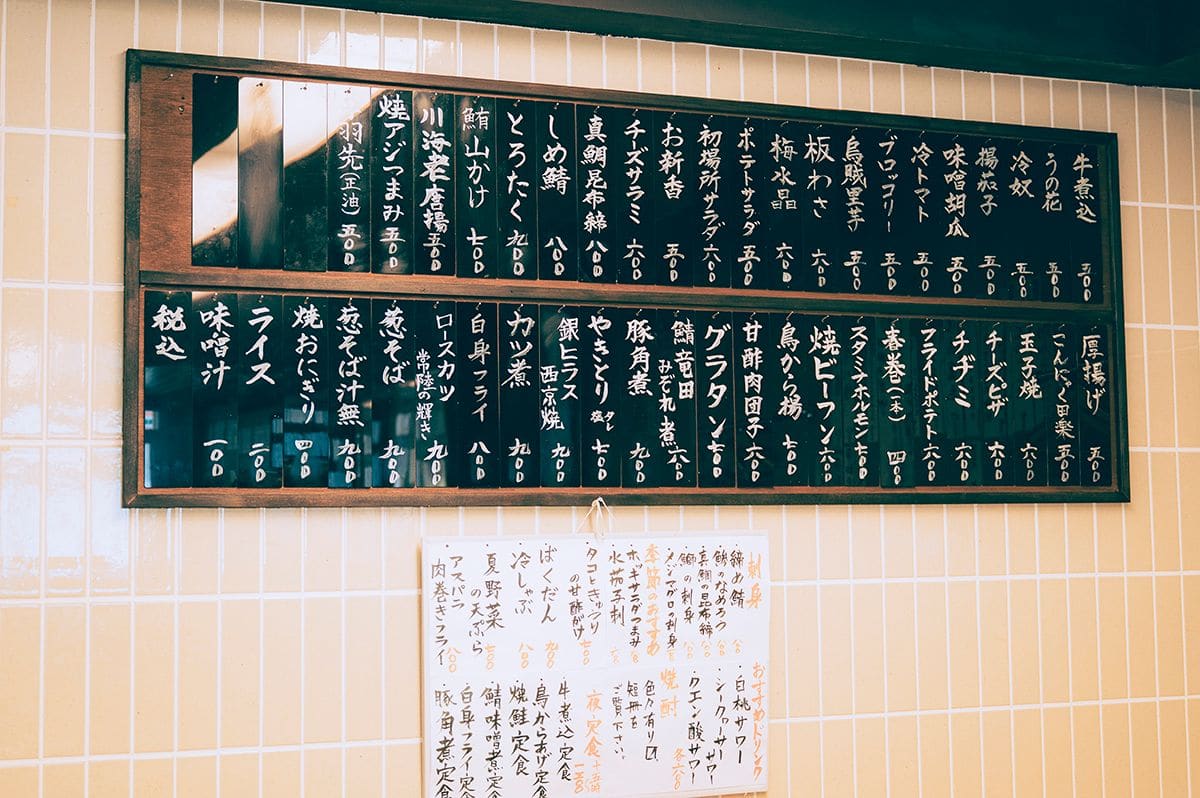 牛煮込 五〇〇
うの花 五〇〇
冷奴 五〇〇
揚茄子 五〇〇
味噌胡瓜 五〇〇
冷トマト 五〇〇
ブロッコリー 五〇〇
烏賊里芋 五〇〇
板わさ 六〇〇
梅水晶 六〇〇
ポテトサラダ 五〇〇
初場所サラダ 六〇〇
お新香 五〇〇
チーズサラミ 六〇〇
真鯛昆布締 八〇〇
しめ鯖 八〇〇
とろたく 九〇〇
鮪山かけ 七〇〇
川海老唐揚 五〇〇
焼アジつまみ 五〇〇
羽先(正油) 五〇〇
厚揚げ 五〇〇
こんにゃく田楽 五〇〇
玉子焼 六〇〇
チーズピザ 六〇〇
チヂミ 六〇〇
フライドポテト 六〇〇
春巻(一本) 四〇〇
スタミナホルモン 七〇〇
焼ビーフン 六〇〇
鳥から揚 七〇〇
甘酢肉団子 六〇〇
グラタン 七〇〇
鯖竜田みぞれ煮 六〇〇
豚角煮 九〇〇
やきとり タレ 塩 七〇〇
銀ヒラス西京焼 九〇〇
カツ煮 九〇〇
白身フライ 八〇〇
ロースカツ 常陸の輝き 九〇〇
葱そば 九〇〇
葱そば汁無 九〇〇
焼おにぎり 四〇〇
ライス 二〇〇
味噌汁 一〇〇
税込
刺身
・締め鯖 八〇
・鯵のなめろう
・真鯛の昆布締 八〇〇
・鰤の刺身 八〇〇
・メジマグロの刺身
季節のおすすめ
・ホッキサラダつまみ
・水茄子刺
・タコときゅうりの甘酢がけ 七〇〇
・ばくだん 九〇〇
・冷しゃぶ 八〇〇
・夏野菜の天ぷら 七〇〇
・アスパラ肉巻きフライ 八〇〇
おすすめドリンク
・白桃サワー
・シークヮーサーサワー
・クエン酸サワー 各六〇〇
焼酎
色々有り〼
短冊を
ご覧下さい。
夜・定食
・牛煮込定食
・鳥からあげ定食
・焼鮭定食
・鯖味噌煮定食
・白身フライ定食
・豚角煮定食